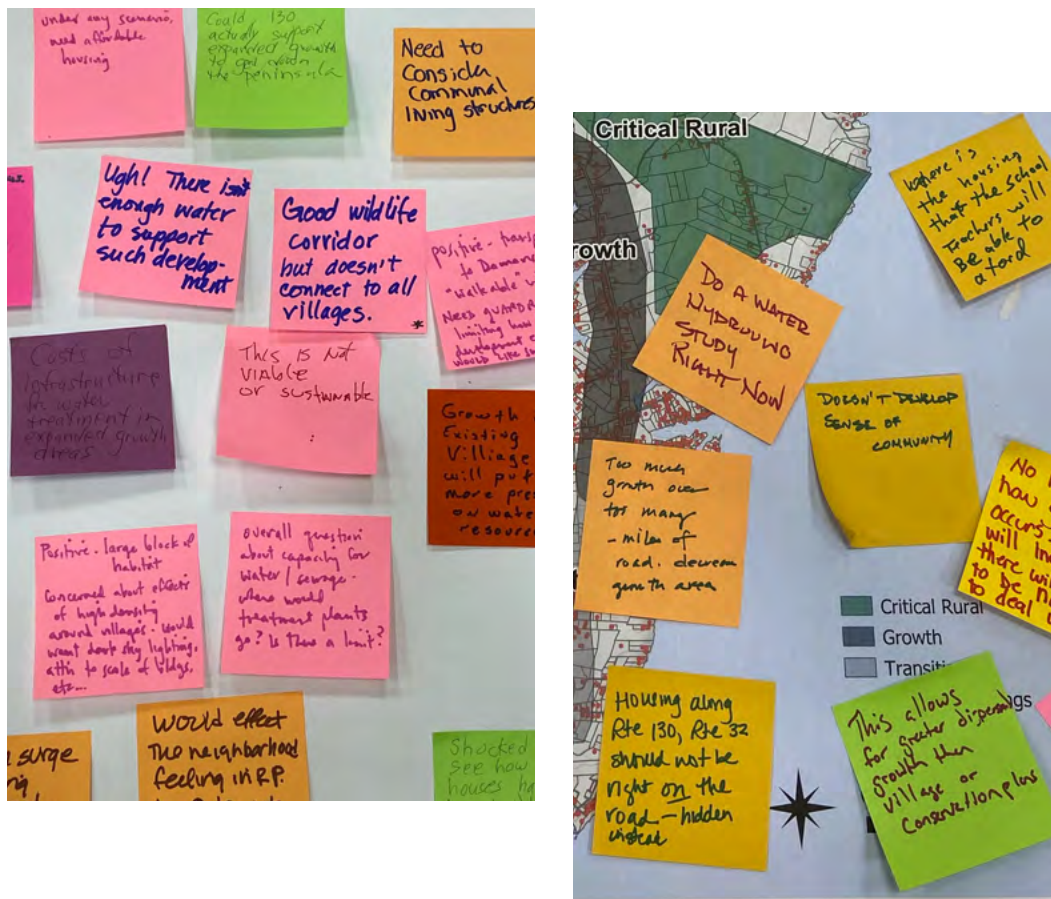 under any scenario,
need affordable
housing
Could 130
actually support
expanded growth
to get down
the peninsula
Need to
Consider
Communal
living structures
Ugh! There isn't
enough water
to support
such develop-
ment
Good wildlife
corridor
but doesn't
connect to all
villages.
*
positive - transp
to Damar
"walkable"
Need guard
limiting how
development
would like
Costs of
infrastructure
for water
treatment in
expanded growth
areas
This is not
viable
or sustainable
Growth
Existing
Villiage
will put
more pre
on wate
resourc
Positive - large block of
habitat
Concerned about effects
of high density
around villages - would
want dark sky lighting,
attn to scale of bldgs,
etc...
overall question
about capacity for
water / sewage -
where would
treatment plants
go? Is there a limit?
surge
would effect
The neighborhood
feeling in RP.
Shocked
see how
houses ha
Critical Rural
rowth
Where is
the housing
that the school
Teachers will
Be able to
aford
DO A WATER
HYDROLIND
STUDY
RIGHT NOW
DOESN'T DEVELOP
SENSE OF
COMMUNITY
Too much
growth over
too many
- miles of
road. decrease
growth area
No
how
occurs
will in
there wi
to be n
to deal
Critical Rural
Growth
Transiti
ngs
Housing along
Rte 130, Rte 32
should not be
right on the
road - hidden
instead
This allows
for greater dispersal
growth then
village or
Conservation plans